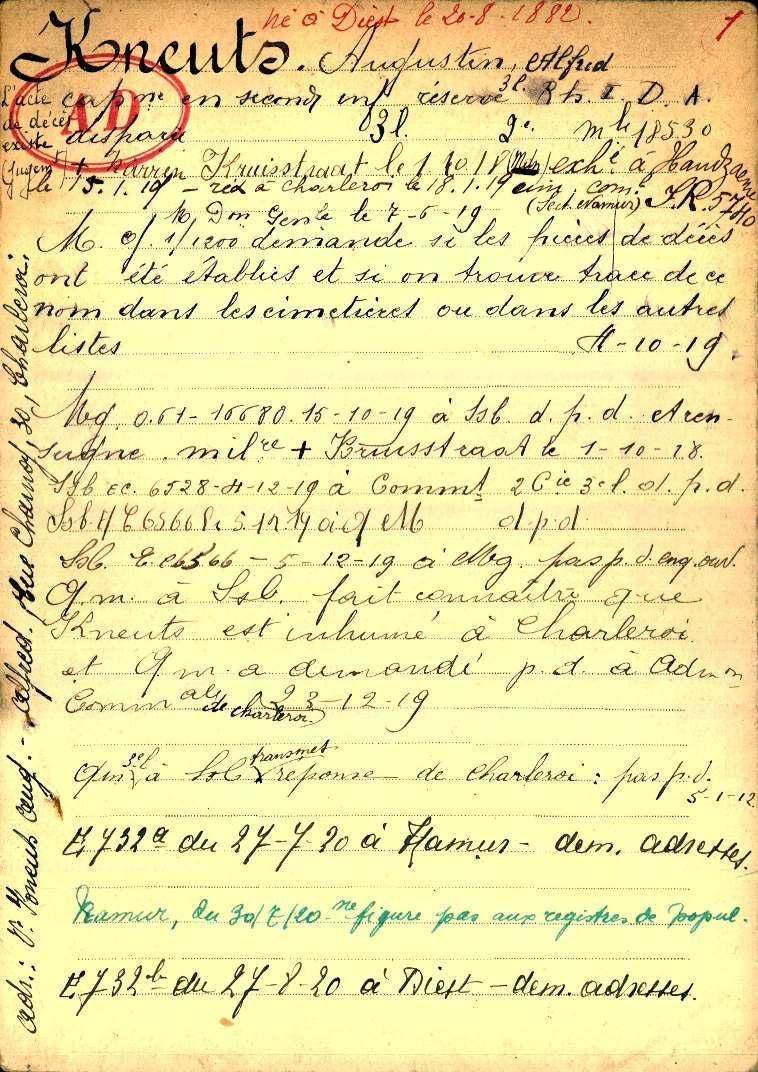 né à Diest le 20-8-1882.
1
Kneuts. Augustin, Alfred
L'acte
de décès
existe
AD
cap ne en second inf réserve 3 l. D. A.
disparu 3 l. 2e. mle 18530
Kruisstraat le 1 10 18 exhé à Handzaeme
le 15.1.19 - réà à Charleroi le 18.1.19 cim. com.
Gente le 7-6-19 (Sect. Namur)
M. of. 1/1200 demande si les pièces de décès
ont été établies et si on trouve trace de ce
nom dans les cimetières ou dans les autres
listes 4-10-19.
Mg. 0.61-16680.15-10-19 à Ssb. d.p.d. et ren-
seigne. milre + Kruisstraat le 1-10-18.
Ssb ec. 6528-4-12-19 à Commt 2 Cie 3e l. d.p.d.
Ssb 4/E 6566 le 5-12-19 à Q M d.p.d.
Ssb. E. 6566 - 5-12-19 à Mg. pas p.d.
Q.m. à Ssb. fait connaître que
Kneuts est inhumé à Charleroi.
et Qm. a demandé p.d. à Admon
Commale de Charleroi 23-12-19
Qm 3el à Ssb transmet réponse de Charleroi : pas p.d.
5-1-12
E 732a du 27-7-20 à Namur - dem. adresses.
Namur, du 30/7/20 ne figure pas aux registres de popul.
E 732b du 27-8-20 à Diest - dem. adresses.
adr.: Vr Kneuts Aug. - Alfred. Rue Charnoy, 30, Charleroi.